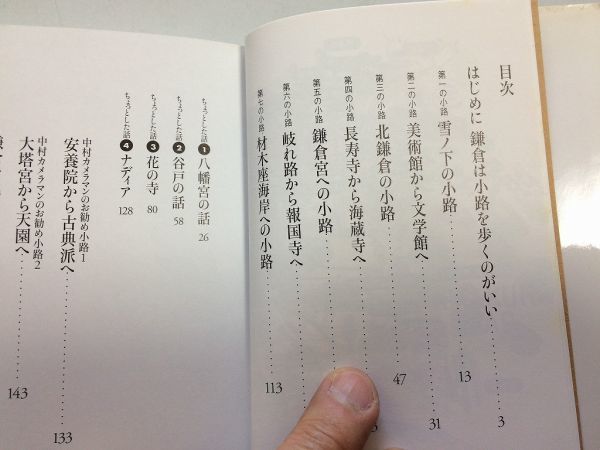 目次
はじめに 鎌倉は小路を歩くのがいい……3
第一の小路 雪ノ下の小路……13
第二の小路 美術館から文学館へ……31
第三の小路 北鎌倉の小路……47
第四の小路 長寿寺から海蔵寺へ……
第五の小路 鎌倉宮への小路……
第六の小路 岐れ路から報国寺へ……
第七の小路 材木座海岸への小路……113
ちょっとした話❶ 八幡宮の話 26
ちょっとした話❷ 谷戸の話 58
ちょっとした話❸ 花の寺 80
ちょっとした話❹ ナディア 128
中村カメラマンのお勧め小路1
安養院から古典派へ……133
中村カメラマンのお勧め小路2
大塔宮から天園へ……143